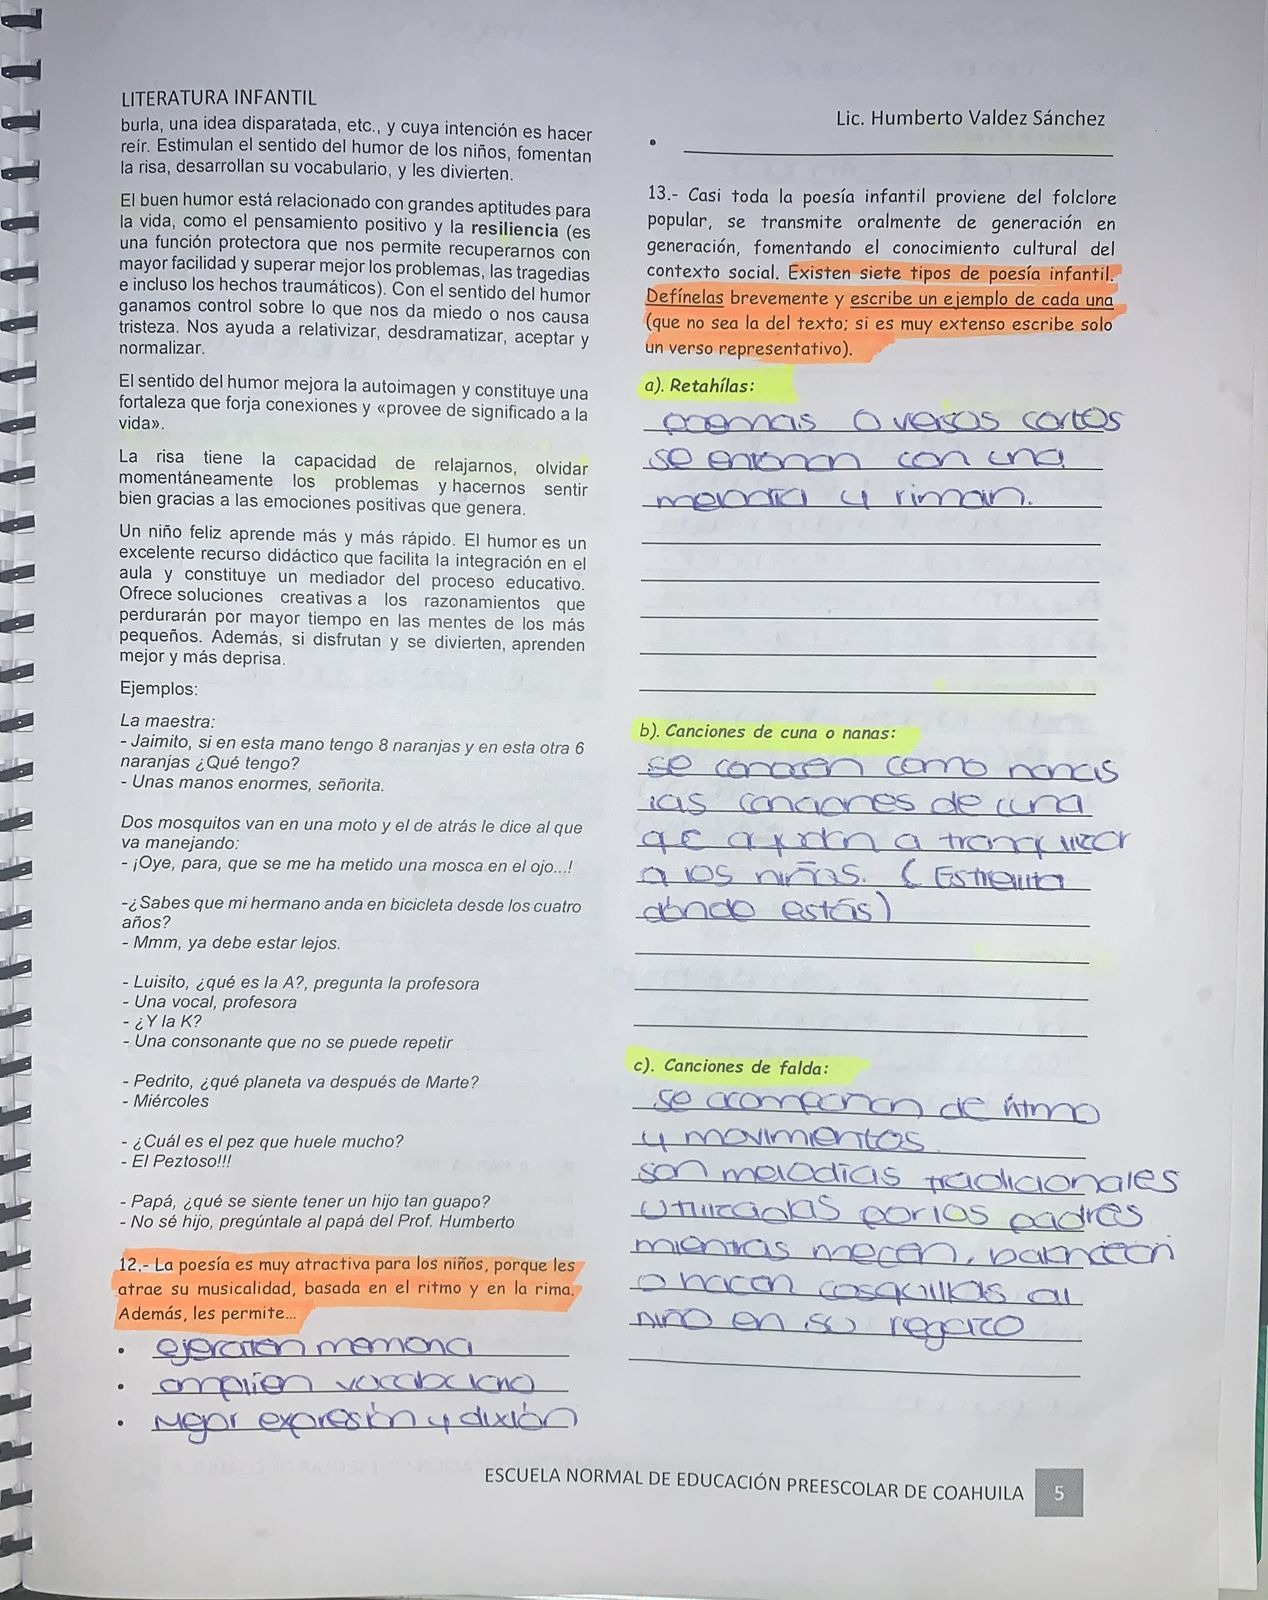 LITERATURA INFANTIL
burla, una idea disparatada, etc., y cuya intención es hacer
reír. Estimulan el sentido del humor de los niños, fomentan
la risa, desarrollan su vocabulario, y les divierten.
El buen humor está relacionado con grandes aptitudes para
la vida, como el pensamiento positivo y la resiliencia (es
una función protectora que nos permite recuperarnos con
mayor facilidad y superar mejor los problemas, las tragedias
e incluso los hechos traumáticos). Con el sentido del humor
ganamos control sobre lo que nos da miedo o nos causa
tristeza. Nos ayuda a relativizar, desdramatizar, aceptar y
normalizar.
El sentido del humor mejora la autoimagen y constituye una
fortaleza que forja conexiones y «provee de significado a la
vida».
La risa tiene la capacidad de relajarnos, olvidar
momentáneamente los problemas y hacernos sentir
bien gracias a las emociones positivas que genera.
Un niño feliz aprende más y más rápido. El humor es un
excelente recurso didáctico que facilita la integración en el
aula y constituye un mediador del proceso educativo.
Ofrece soluciones creativas a los razonamientos que
perdurarán por mayor tiempo en las mentes de los más
pequeños. Además, si disfrutan y se divierten, aprenden
mejor y más deprisa.
Ejemplos:
La maestra:
- Jaimito, si en esta mano tengo 8 naranjas y en esta otra 6
naranjas ¿Qué tengo?
- Unas manos enormes, señorita.
Dos mosquitos van en una moto y el de atrás le dice al que
va manejando:
- ¡Oye, para, que se me ha metido una mosca en el ojo...!
-¿Sabes que mi hermano anda en bicicleta desde los cuatro
años?
- Mmm, ya debe estar lejos.
- Luisito, ¿qué es la A?, pregunta la profesora
- Una vocal, profesora
- ¿Y la K?
- Una consonante que no se puede repetir
- Pedrito, ¿qué planeta va después de Marte?
- Miércoles
- ¿Cuál es el pez que huele mucho?
- El Peztoso!!!
- Papá, ¿qué se siente tener un hijo tan guapo?
- No sé hijo, pregúntale al papá del Prof. Humberto
12.- La poesía es muy atractiva para los niños, porque les
atrae su musicalidad, basada en el ritmo y en la rima.
Además, les permite...
• ejerciten memoria
• amplien vocabulario
• Mejor expresión y dixión
Lic. Humberto Valdez Sánchez
•
13.- Casi toda la poesía infantil proviene del folclore
popular, se transmite oralmente de generación en
generación, fomentando el conocimiento cultural del
contexto social. Existen siete tipos de poesía infantil.
Defínelas brevemente y escribe un ejemplo de cada una
(que no sea la del texto; si es muy extenso escribe solo
un verso representativo).
a). Retahílas:
poemas o versos cortos
se entonan con una
melodía y riman.
b). Canciones de cuna o nanas:
se conocen como nanas
las canciones de cuna
que ayudan a tranquilizar
a los niños. (Estrellita
dónde estás)
c). Canciones de falda:
se acompañan de ritmo
y movimientos
son melodías tradicionales
utilizadas por los padres
mientras mecen, balancean
o hacen cosquillas al
niño en su regazo
ESCUELA NORMAL DE EDUCACIÓN PREESCOLAR DE COAHUILA 5